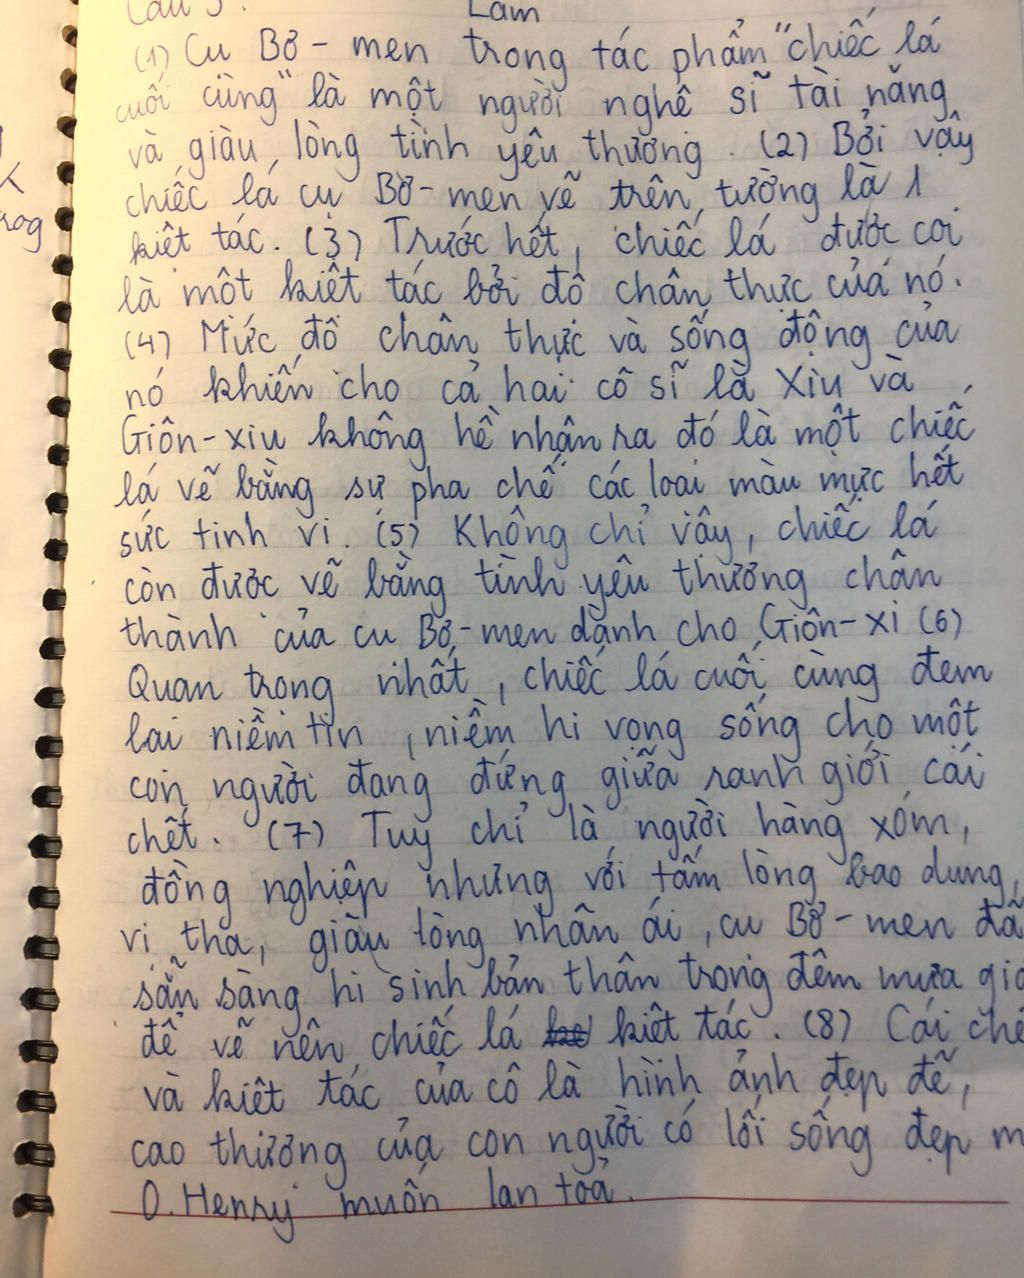 Câu 3: Làm
(1) Cụ Bơ-men trong tác phẩm "chiếc lá
cuối cùng" là một người nghệ sĩ tài năng
và giàu lòng tình yêu thương. (2) Bởi vậy
chiếc lá cụ Bơ-men vẽ trên tường là 1
kiệt tác. (3) Trước hết, chiếc lá được coi
là một kiệt tác bởi độ chân thực của nó.
(4) Mức độ chân thực và sống động của
nó khiến cho cả hai cô sĩ là Xiu và
Giôn-xiu không hề nhận ra đó là một chiếc
lá vẽ bằng sự pha chế các loại màu mực hết
sức tinh vi. (5) Không chỉ vậy, chiếc lá
còn được vẽ bằng tình yêu thương chân
thành của cụ Bơ-men dành cho Giôn-xi (6)
Quan trọng nhất, chiếc lá cuối cùng đem
lại niềm tin, niềm hi vọng sống cho một
con người đang đứng giữa ranh giới cái
chết. (7) Tuy chỉ là người hàng xóm,
đồng nghiệp nhưng với tấm lòng bao dung,
vị tha, giàu lòng nhân ái, cụ Bơ-men đã
sẵn sàng hi sinh bản thân trong đêm mưa gió
để vẽ nên chiếc lá kiệt tác. (8) Cái
và kiệt tác của cô là hình ảnh đẹp đẽ,
cao thượng của con người có lối sống đẹp
O.Henry muốn lan toả.